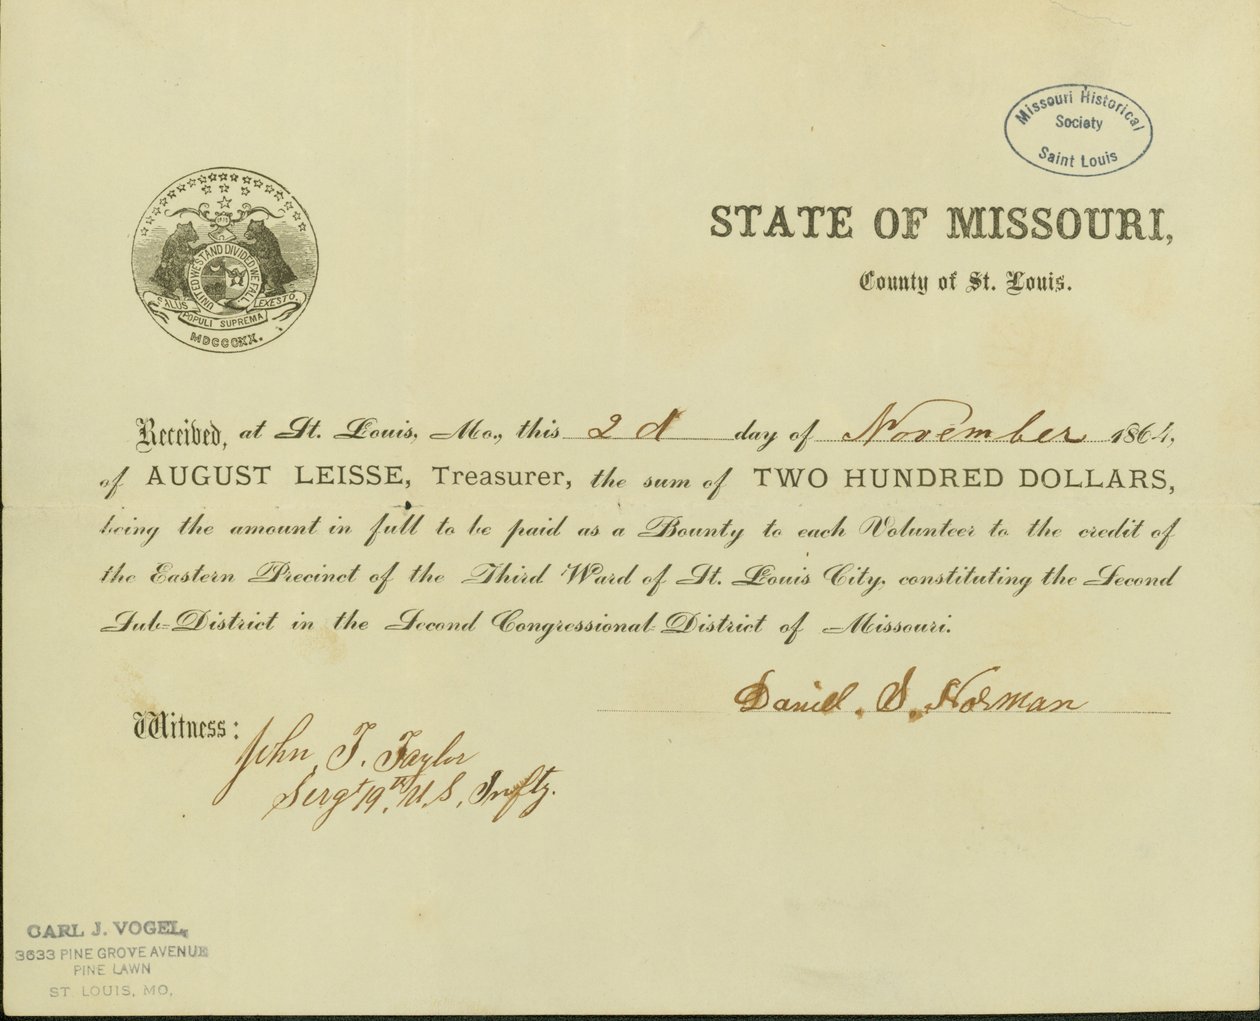 Missouri Historical
Society
Saint Louis
STATE OF MISSOURI,
County of St. Louis.
UNITED WE STAND DIVIDED WE FALL
SALUS POPULI SUPREMA LEX ESTO.
MDCCCXX.
Received, at St. Louis, Mo., this 2d day of November 1864,
of AUGUST LEISSE, Treasurer, the sum of TWO HUNDRED DOLLARS,
being the amount in full to be paid as a Bounty to each Volunteer to the credit of
the Eastern Precinct of the Third Ward of St. Louis City, constituting the Second
Sub-District in the Second Congressional District of Missouri.
Daniel. S. Norman
Witness:
John, T. Taylor
Sergt 19th, U.S, Inftz.
CARL J. VOGEL,
3633 PINE GROVE AVENUE
PINE LAWN
ST. LOUIS, MO,